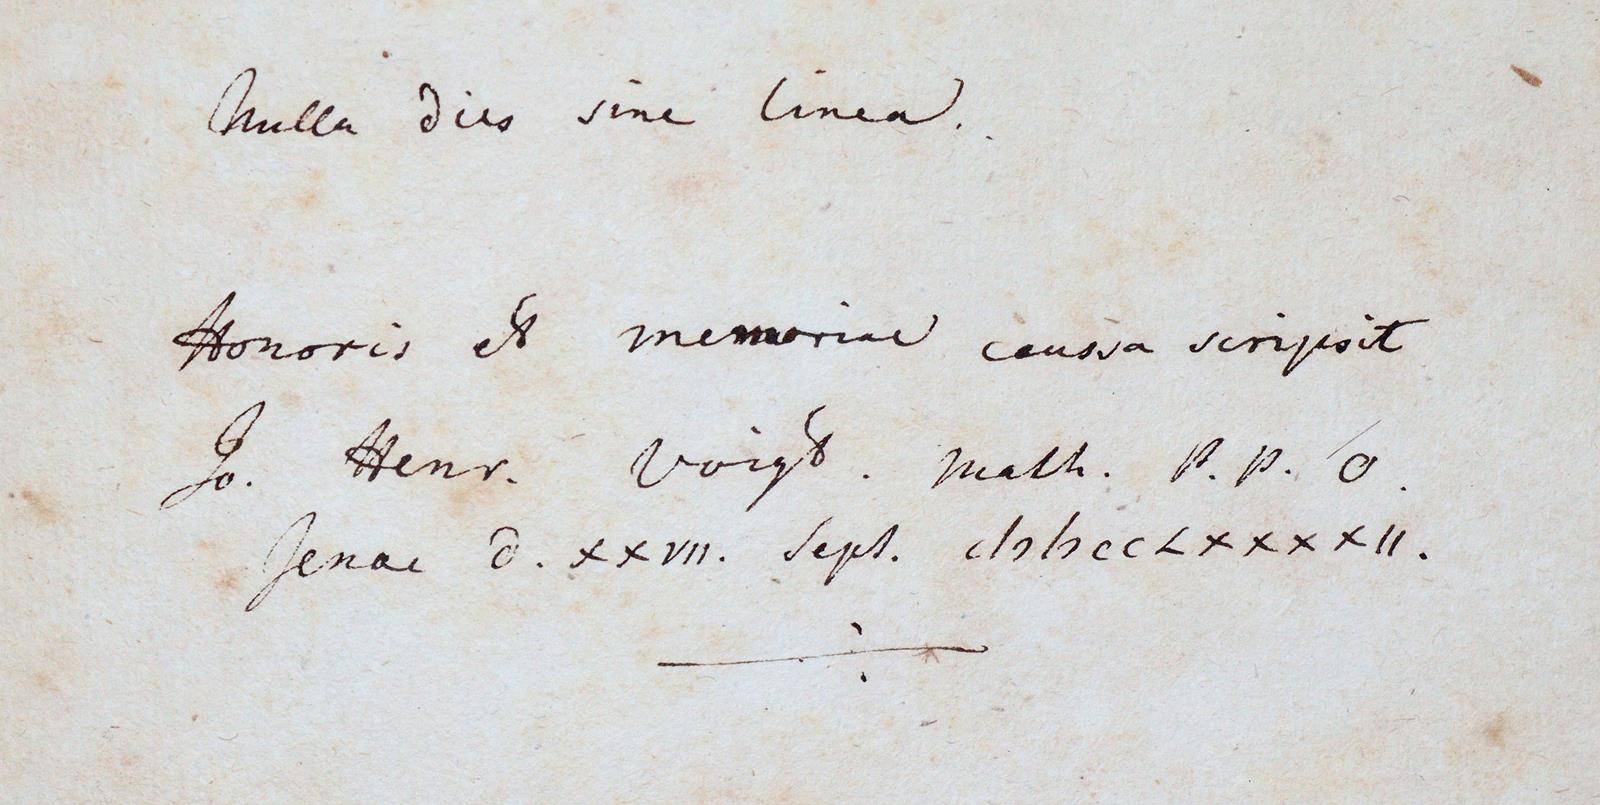 Nulla dies sine linea.
Honoris et memoriae caussa scripsit
Jo. Henr. Voigt. Math. P. P. O.
Jenae d. XXVII. Sept. cIↃIↃccLXXXXII.